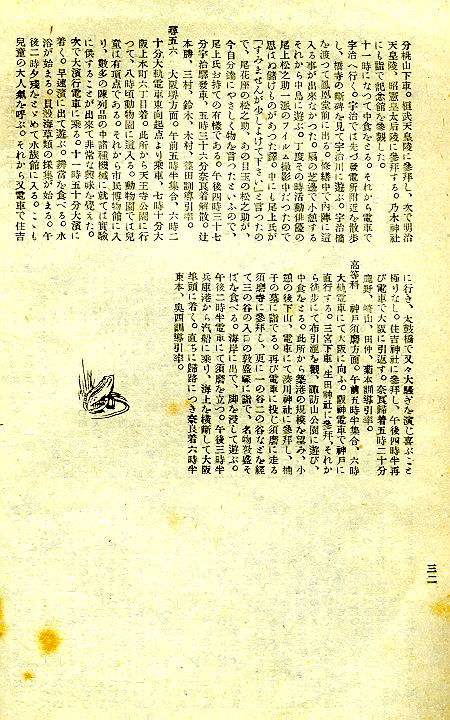 分桃山下車。桓武天皇陵に參拜し、次で明治
天皇陵、昭憲皇太后陵に參拜する。乃木神社
にも詣で記念館を參觀した。
十一時になつて中食をとる。それから電車で
宇治へ行く。宇治では先づ發電所附近を散歩
し、橋寺の斷碑を見て宇治川に遊ぶ。宇治橋
を渡つて鳳凰堂前に出る。修繕中で內陣に這
入る事が出來なかつた。扇の芝邊で小憩する
それから中島に遊ぶ。丁度その時活動俳優の
尾上松之助一派のフイルム撮影中だつたので
思はぬ儲けものがあつた譯。中にも尾上氏が
「すみませんが少しよけて下さい」と言つたの
で、尾花座の松之助が、あの目玉の松之助が、
今自分達にやさしく物を言つたといふので、
尾上氏お持ての有樣である。午後四時三十七
分宇治驛發車、五時三十六分奈良着解散。辻
本勝、三村、鈴木、木村、窪田訓導引率。
尋五六　大阪堺方面。午前五時半集合、六時二
十分大軌電車東向起點より乘車、七時十分大
阪上本町六丁目着。此所から天王寺公園に行
つて、八時頃動物園に這入る。動物園では兒
童は有頂點である。それから市民博物館に入
り、數多の陳列品の中諸種機械に就ては實驗
に供することが出來て非常な興味を覺えた。
次で大濱行電車に乘る。十一時五十分大濱に
着く。早速濱に出て遊ぶ。辨當を食べる。水
浴が始まる。貝殼海草類の採集が始まる。午
後二時夕殘をとゞめて水族館に入る。こゝも
兒童の大人氣を呼ぶ。それから又電車で住吉
に行き、太鼓橋で又々大騷ぎを演じ喜ぶこと
極りなし。住吉神社に參拜し、午後四時半再
び電車で大阪に引返す。奈良歸着五時二十分
鹿野、崎山、田仲、菊本訓導引率。
高等科　神戶須磨方面。午前五時半集合、六時
大軌電車にて大阪に向ふ。阪神電車で神戶に
直行する。三宮下車、生田神社に參拜、それか
ら徒步にて布引瀧を觀、諏訪山公園に遊び、
中食をとる。此所から築港の規模を望み、小
憩の後下山、電車にて湊川神社に參拜し、楠
子の墓に詣でる。再び電車に投じ須磨に走る
須磨寺に參拜し、更に一の谷二の谷などを經
て三の谷の入口の敦盛塚に詣で、名物敦盛そ
ばを食べる。海岸に出で、脚を浸して遊ぶ。
午後二時半電車にて須磨を立つ。午後三時半
兵庫港から汽船に乘り、海上を橫斷して大阪
埠頭に着く。直ちに歸路につき奈良着六時半
東本、奧西訓導引率。
三二